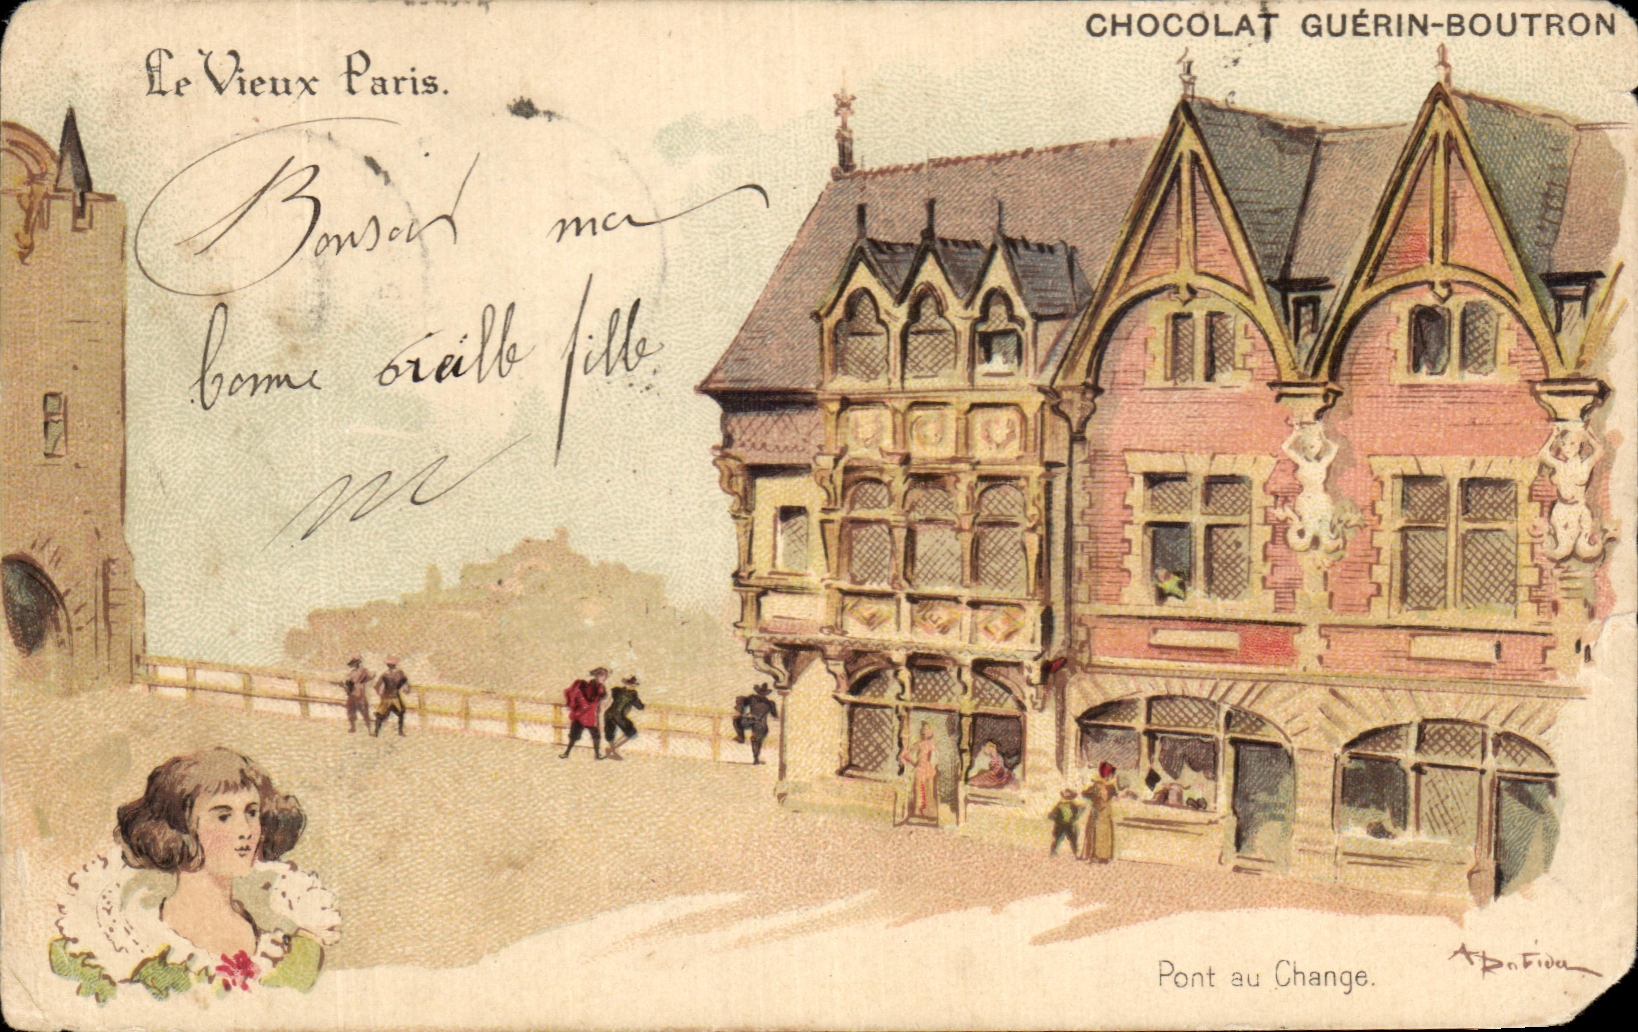 CHOCOLAT GUÉRIN-BOUTRON
Le Vieux Paris.
Bonsoir ma
bonne vieille fille
Pont au Change.